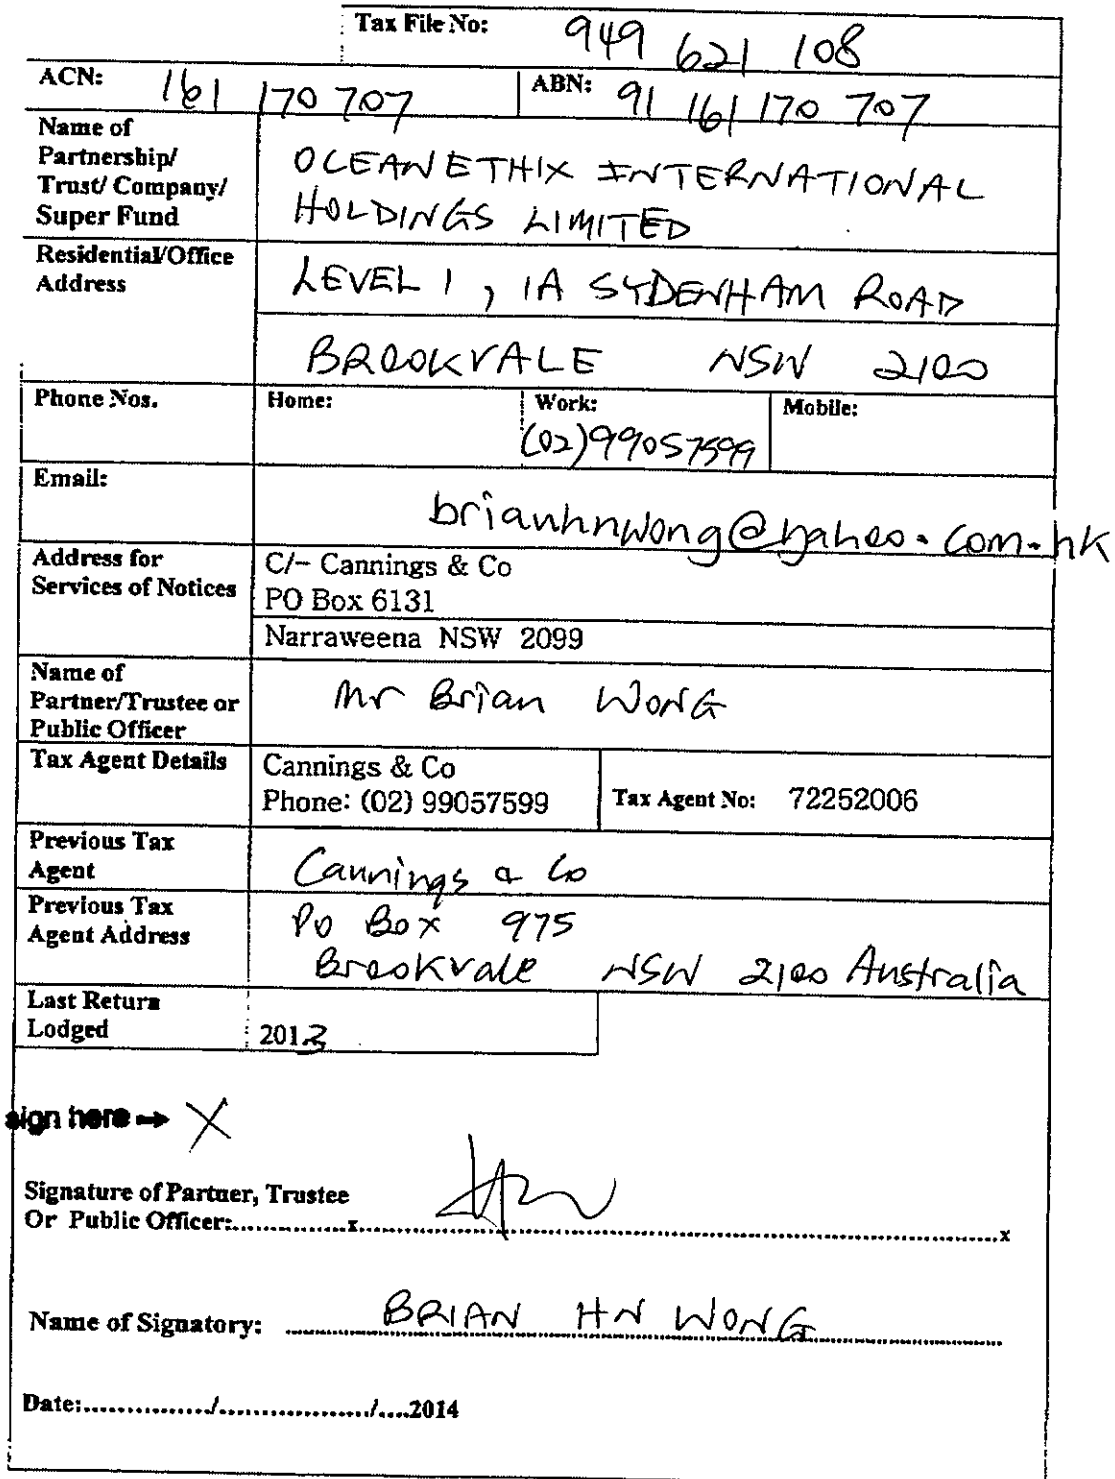 Tax File No: 949 621 108
ACN: 161 170 707 ABN: 91 161 170 707
Name of
Partnership/
Trust/ Company/
Super Fund
OCEANETHIX INTERNATIONAL
HOLDINGS LIMITED
Residential/Office
Address
LEVEL 1, 1A SYDENHAM ROAD
BROOKVALE NSW 2100
Phone Nos. Home: Work: Mobile:
(02)99057599
Email:
brianhnwong@yahoo.com.hk
Address for
Services of Notices
C/- Cannings & Co
PO Box 6131
Narraweena NSW 2099
Name of
Partner/Trustee or
Public Officer
Mr Brian WONG
Tax Agent Details
Cannings & Co
Phone: (02) 99057599
Tax Agent No: 72252006
Previous Tax
Agent
Cannings & Co
Previous Tax
Agent Address
PO Box 975
Brookvale NSW 2100 Australia
Last Return
Lodged
2013
sign here → X
Signature of Partner, Trustee
Or Public Officer:...............x...............x
Name of Signatory: BRIAN HN WONG
Date:.............../................../....2014